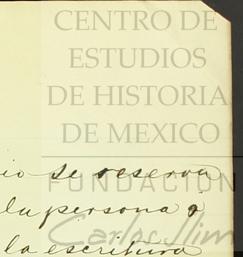 CENTRO DE
ESTUDIOS
DE HISTORIA
DE MEXICO
io se reserva
FUNDACIÓN
la persona á
Carlos Slim
la escritura